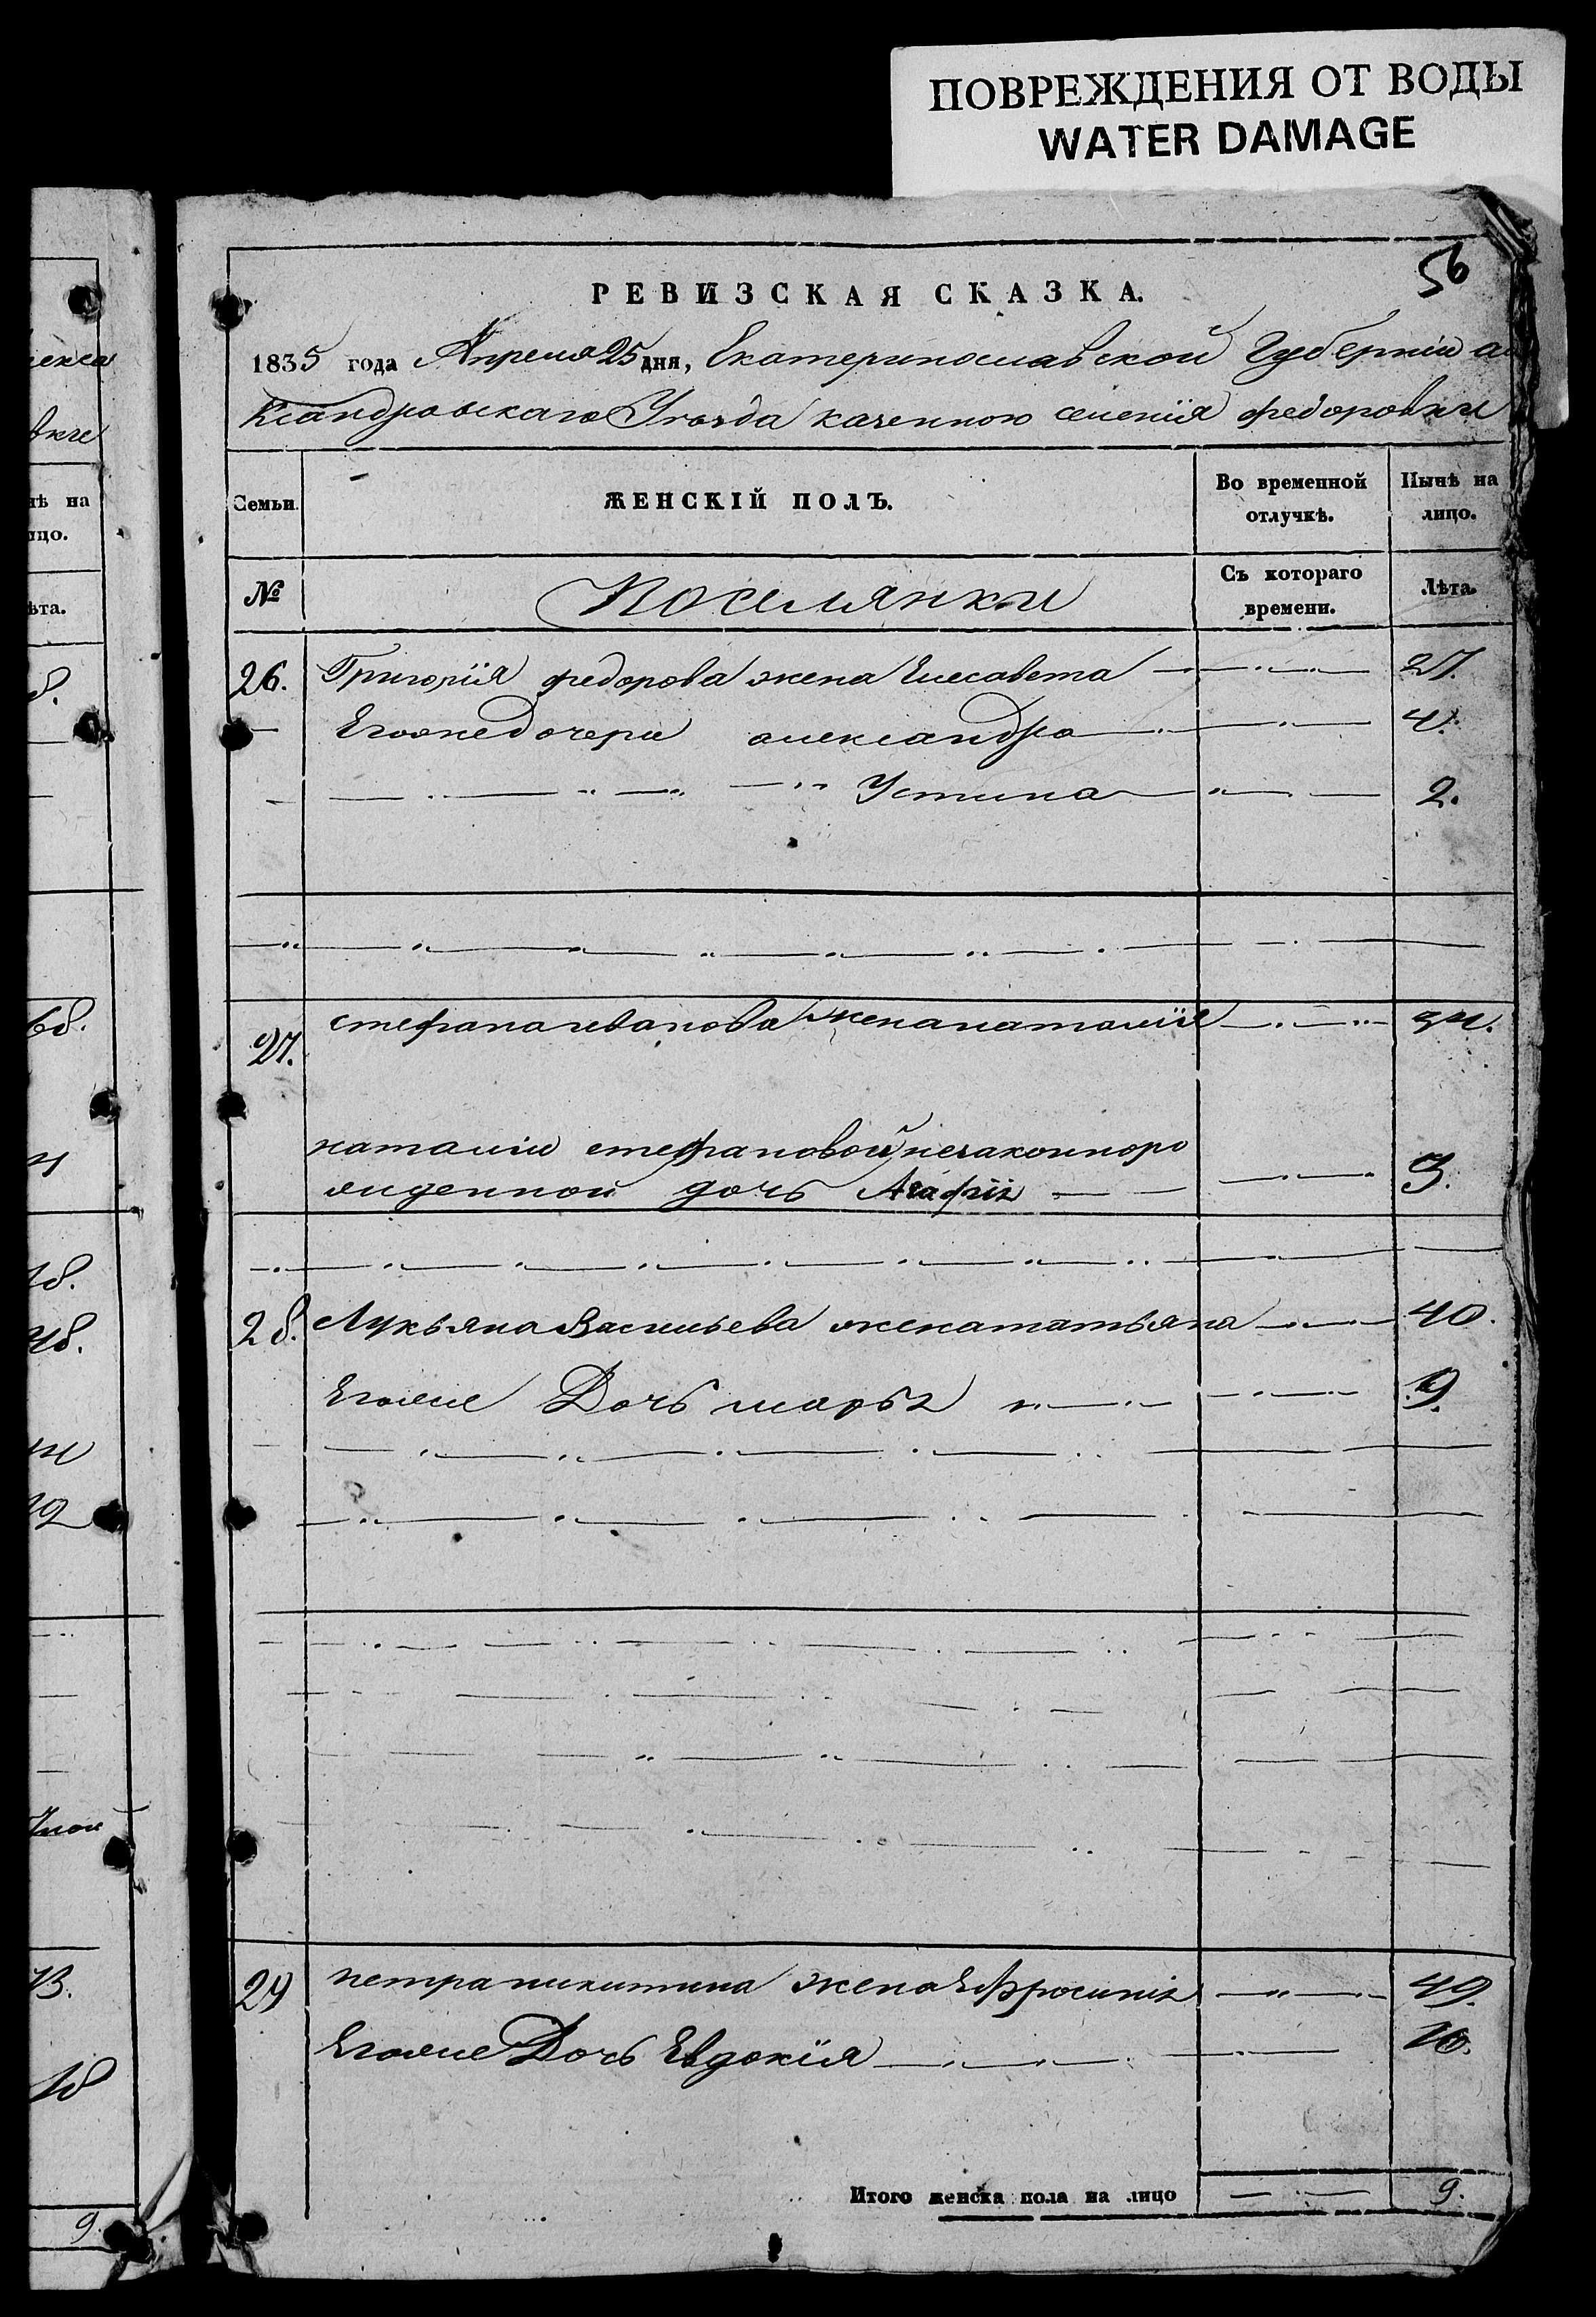 ПОВРЕЖДЕНИЯ ОТ ВОДЫ
WATER DAMAGE
56
РЕВИЗСКАЯ СКАЗКА.
1835 года Апреля 25 дня, Екатеринославской Губерніи але
ксандровскаго Уезда казенного селенія федоровки
Семьи.
ЖЕНСКІЙ ПОЛЪ.
Во временной отлучкѣ.
Нынѣ на лицо.
№
Поселянки
Съ котораго времени.
Лѣта.
26. Григорія федорова жена Елесавета 27.
Егоже дочери александра 4.
Устина 2.
27. стефана иванова жена наталія 34.
наталіи стефановой незаконноро
жденной дочь Агафія 3.
28. Лукьяна Васильева жена татьяна 40.
Егоже Дочь марья 9.
29 петра никитина жена Ефросинія 49.
Егоже Дочь Евдокія 16.
Итого женска пола на лицо 9.